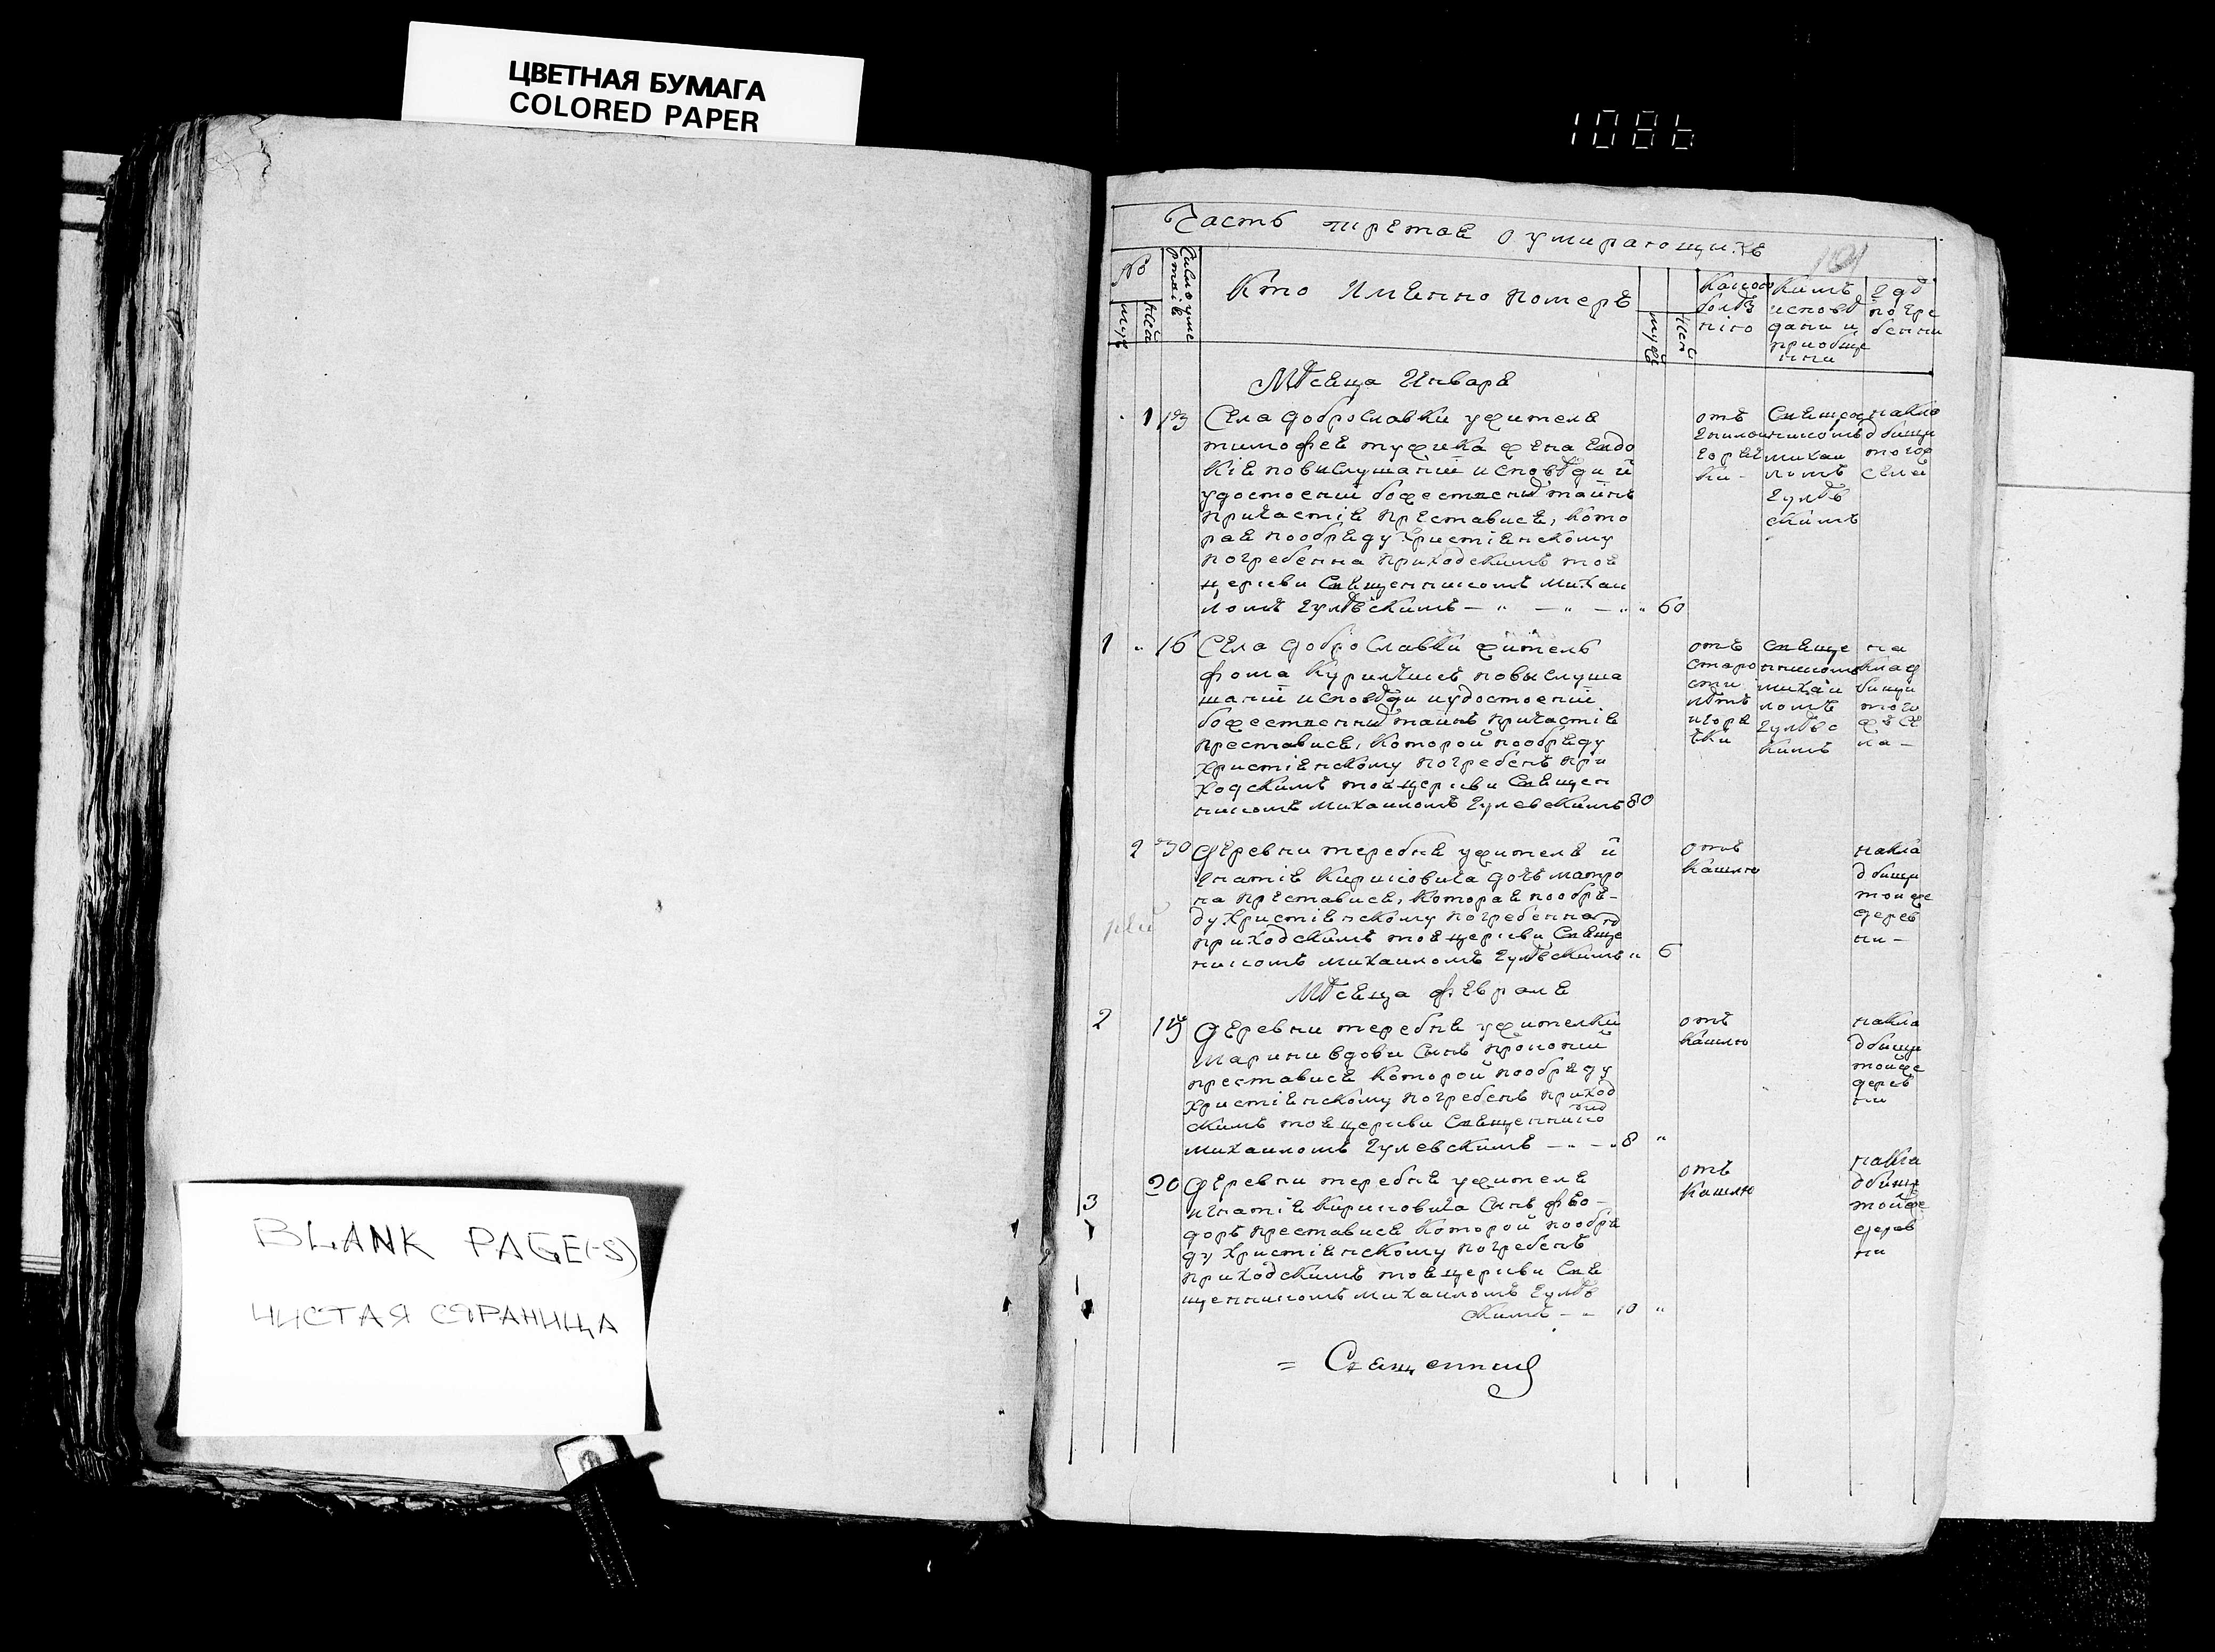 ЦВЕТНАЯ БУМАГА
COLORED PAPER
1086
BLANK PAGE(-S)
ЧИСТАЯ СТРАНИЦА
Часть третая о умирающихъ
№
Кто Именно померъ
мужъ
женъ
Какою
болѣз
нію
Кимъ
исповѣ
дани и
приобще
нни
Гдѣ
погре
бенни
Мѣсяца Января
1 13 Села доброславки жителя
тимофея жена Евдо
кія повислушаніи исповѣди и
удостоеніи божественнихъ таинъ
причастія преставися, кото
рая пообряду христіянскому
погребенна приходскимъ тоя
церкви Священникомъ михаи
ломъ Гулѣвскимъ — " — " — " " 60
отъ
горяч
ки -
Священ
никомъ
михаи
ломъ
Гулѣв
скимъ
накла
дбищи
тогож
села
1 " 16 Села доброславки житель
фома повыслуша
шаніи исповѣди иудостоеніи
божественнихъ таинъ причастія
преставися, которой пообряду
христіянскому погребенъ при
ходскимъ тоя церкви Священ
никомъ михаиломъ Гулевскимъ 80
отъ
старо
сти
лѣтъ
игоря
чки
Свяще
нникомъ
михаи
ломъ
Гулѣвс
кимъ
на
клад
бищи
того
жъ се
ла -
2 30 Деревни теребня жителя и
гнатія Кириловича дочь матро
на преставися, которая пообря-
ду христіянскому погребенна
приходскимъ тоя церкви Свяще
никомъ михаиломъ Гулѣвскимъ " 6
отъ
кашлю
накла
дбищи
тойже
дерев
ни -
Мѣсяца февраля
2 Деревни теребня жителки
марини вдови Синъ прокопий
преставися которой пообряду
христіянскому погребенъ приход
скимъ тоя церкви Священнико
михаиломъ Гулевскимъ — " — " 8 "
отъ
кашлю
накла
дбищи
тойже
дерев
ни
3 20 Деревни теребня жителя
игнатія Кириловича Синъ фео-
доръ преставися которой пообря
ду христіянскому погребенъ
приходскимъ тоя церкви Свя
щенникомъ михаиломъ Гулѣв
скимъ - " 10 "
отъ
кашлю
накла
дбищи
тойже
дерев
ни
= Священник